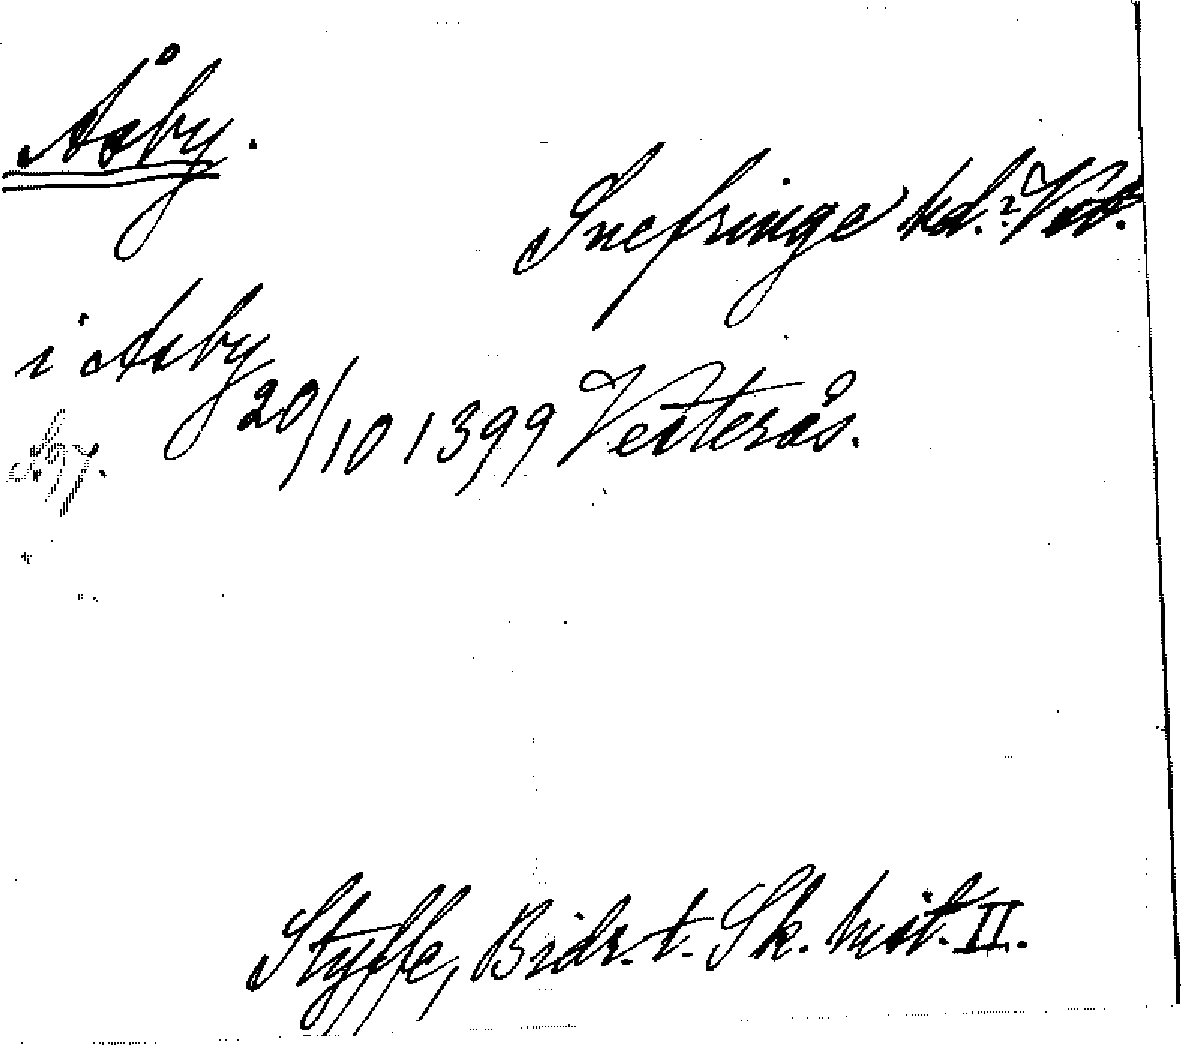 Åsby.
Snefringe hd.? Vstm.
i Asby
20/10 1399 Vesterås.
Styffe, Bidr. t. Sk. hist. II.